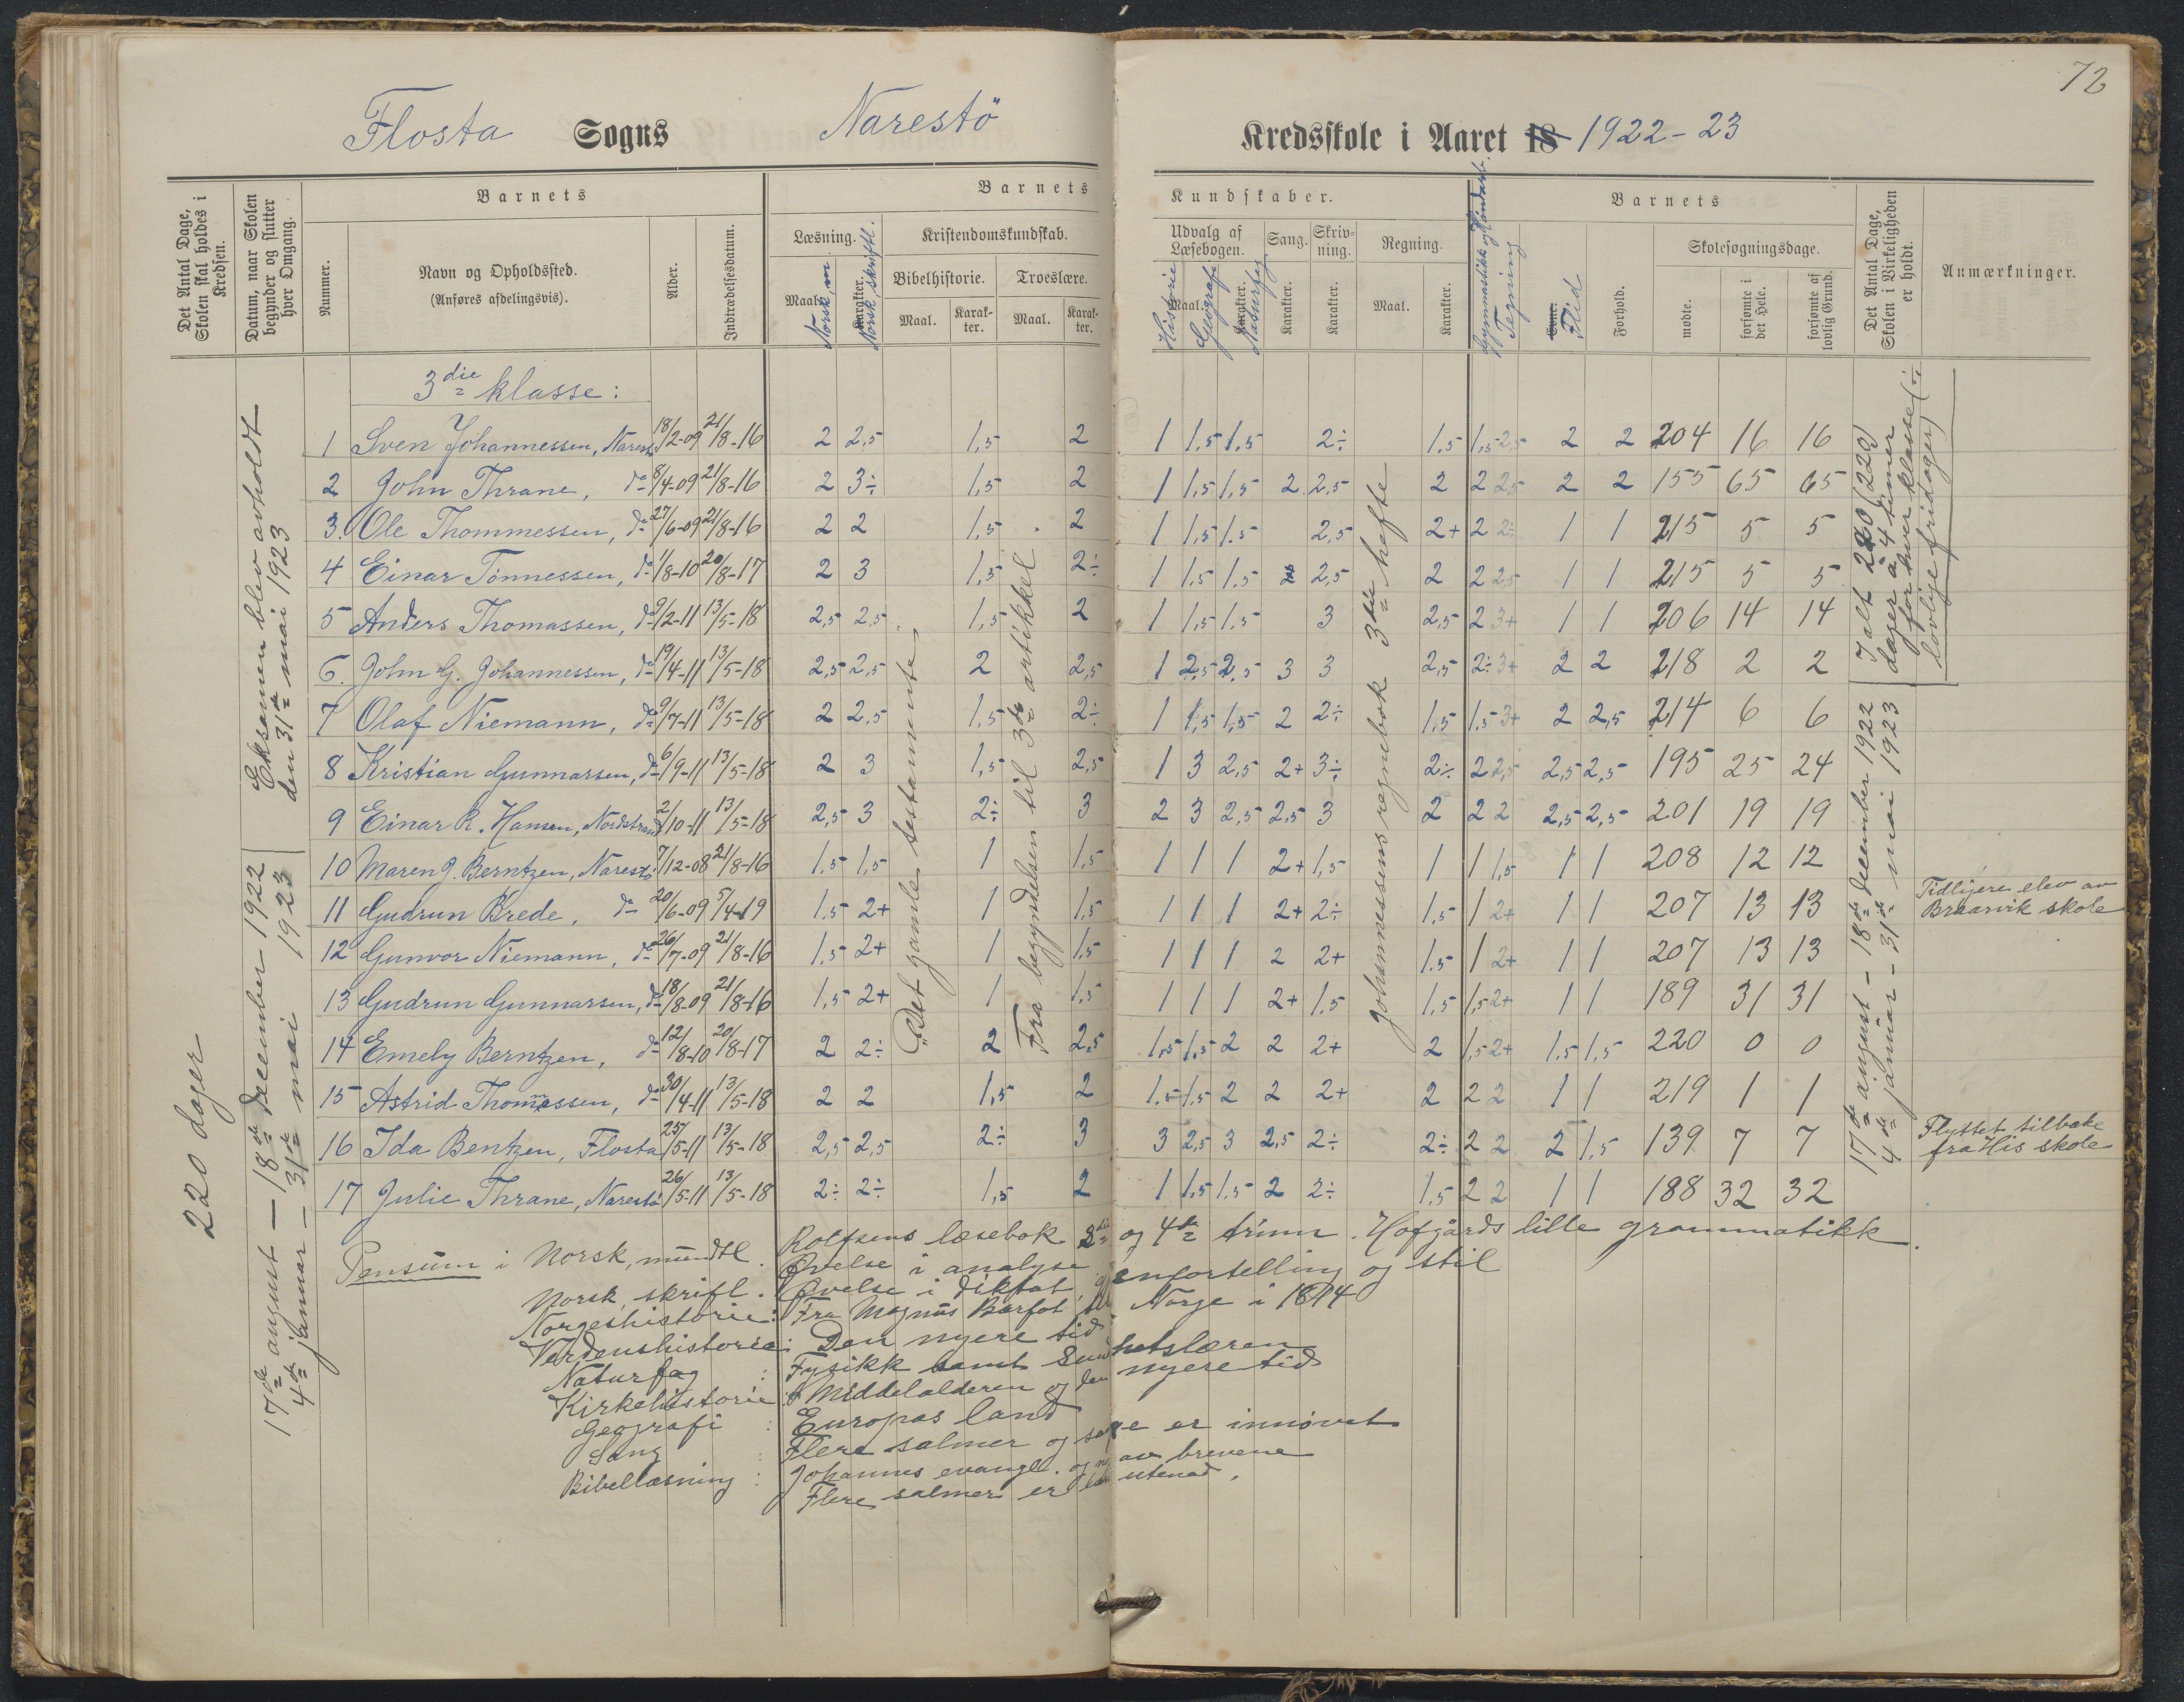 72
Flosta Sogns Narestö Kredsskole i Aaret 18 1922-23
Det Antal Dage, Skolen skal holdes i Kredsen.
Datum, naar Skolen begynder og slutter hver Omgang.
Barnets
Nummer.
Navn og Opholdssted.
(Anføres afdelingsvis).
Alder.
Indtrædelsesdatum.
Barnets Kundskaber.
Læsning.
Maal. Norsk, m.
Karakter. Norsk, skriftl.
Kristendomskundskab.
Bibelhistorie.
Maal.
Karakter.
Troeslære.
Maal.
Karakter.
Udvalg af Læsebogen.
Historie
Maal.
Geografi
Karakter.
Naturfag
Sang.
Karakter.
Skrivning.
Karakter.
Regning.
Maal.
Karakter.
Gymnastikk og Håndarb.
Tegning
Barnets
Evne. Flid
Forhold.
Skolesøgningsdage.
mødte.
forsømte i det Hele.
forsømte af lovlig Grund.
Det Antal Dage, Skolen i Virkeligheden er holdt.
Anmærkninger.
3die klasse:
1 Sven Johannessen, Narestö 18/2-09 21/8-16 2 2,5 1,5 2 1 1,5 1,5 2÷ 1,5 1,5 2,5 2 2 204 16 16
2 John Thrane, do 8/4-09 21/8-16 2 3÷ 1,5 2 1 1,5 1,5 2 2,5 2 2 2,5 2 2 155 65 65
3. Ole Thommessen, do 27/6-09 21/8-16 2 2 1,5 2 1 1,5 1,5 2,5 2+ 2 2÷ 1 1 215 5 5
4 Einar Tönnessen, do 1/8-10 20/8-17 2 3 1,5 2÷ 1 1,5 1,5 2 2,5 2 2 2,5 1 1 215 5 5
5 Anders Thomassen, do 9/2-11 13/5-18 2,5 2,5 1,5 2 1 1,5 1,5 3 2,5 2 3+ 1 1 206 14 14
6. John G. Johannessen, do 19/4-11 13/5-18 2,5 2,5 2 2,5 1 2,5 2,5 3 3 2,5 2÷ 3+ 2 2 218 2 2
7 Olaf Niemann, do 9/7-11 13/5-18 2 2,5 1,5 2÷ 1 1,5 1,5 2 2÷ 1,5 1,5 3+ 2 2,5 214 6 6
8 Kristian Gunnarsen, do 6/9-11 13/5-18 2 3 1,5 2,5 1 3 2,5 2+ 3÷ 2÷ 2 2,5 2,5 2,5 195 25 24
9 Einar R. Hansen, Nordstrand 2/10-11 13/5-18 2,5 3 2÷ 3 2 3 2,5 2,5 3 2 2 2 2,5 2,5 201 19 19
10 Maren J. Berntzen, Narestö 7/12-08 21/8-16 1,5 1,5 1 1,5 1 1 1 2+ 1,5 1 1 1,5 1 1 208 12 12
11 Gudrun Brede, do 20/6-09 5/4-19 1,5 2+ 1 1,5 1 1 1 2+ 2÷ 1,5 1 2+ 1 1 207 13 13 Tidligere elev av Braarvik skole
12 Gunvor Niemann, do 26/7-09 21/8-16 1,5 2+ 1 1,5 1 1 1 2 2+ 1,5 1 2+ 1 1 207 13 13
13 Gudrun Gunnarsen, do 18/8-09 21/8-16 1,5 2+ 1 1,5 1 1 1 2+ 1,5 1,5 1,5 2+ 1 1 189 31 31
14 Emely Berntzen, do 12/8-10 20/8-17 2 2÷ 2 2,5 1,5 1,5 2 2 2+ 2 1,5 2+ 1,5 1,5 220 0 0
15 Astrid Thommessen, do 30/4-11 13/5-18 2 2 1,5 2 1,5 1,5 2 2 2+ 2 2 2 1 1 219 1 1
16 Ida Bentzen, Flosta 25/5-11 13/5-18 2,5 2,5 2÷ 3 3 2,5 3 2,5 2÷ 2÷ 2 2 2 1,5 139 7 7 Flyttet tilbake fra His skole
17 Julie Thrane, Narestö 26/5-11 13/5-18 2÷ 2÷ 1,5 2 1 1,5 1,5 2 2÷ 1,5 2 2 1 1 188 32 32
220 dager
17de august - 18de december 1922
4de januar - 31te mai 1923
Eksamen blev avholdt
den 31te mai 1923
"Det gamle testamente"
Fra begyndelsen til 3die artikkel
Johannessens regnebok 3die hefte
17de august - 18de december 1922
4de januar - 31te mai 1923
I alt 220 (220)
dager à 4 timer
for hver klasse (÷
lovlige fridager)
Pensum i Norsk, mundtl. Rolfsens læsebok 3die og 4de trinn. Hofgårds lille grammatikk.
Øvelse i analyse
Norsk, skriftl. Øvelse i diktat, gjenfortelling og stil
Norgeshistorie: Fra Magnus Barfot til Norge i 1814
Verdenshistorie: Den nyere tid
Naturfag : Fysikk samt sundhetslæren
Kirkehistorie : Middelalderen og den nyere tid
Geografi : Europas land
Sang : Flere salmer og sange er innövet
Bibellæsning : Johannes evangel. og av brevene
Flere salmer er lært utenad.